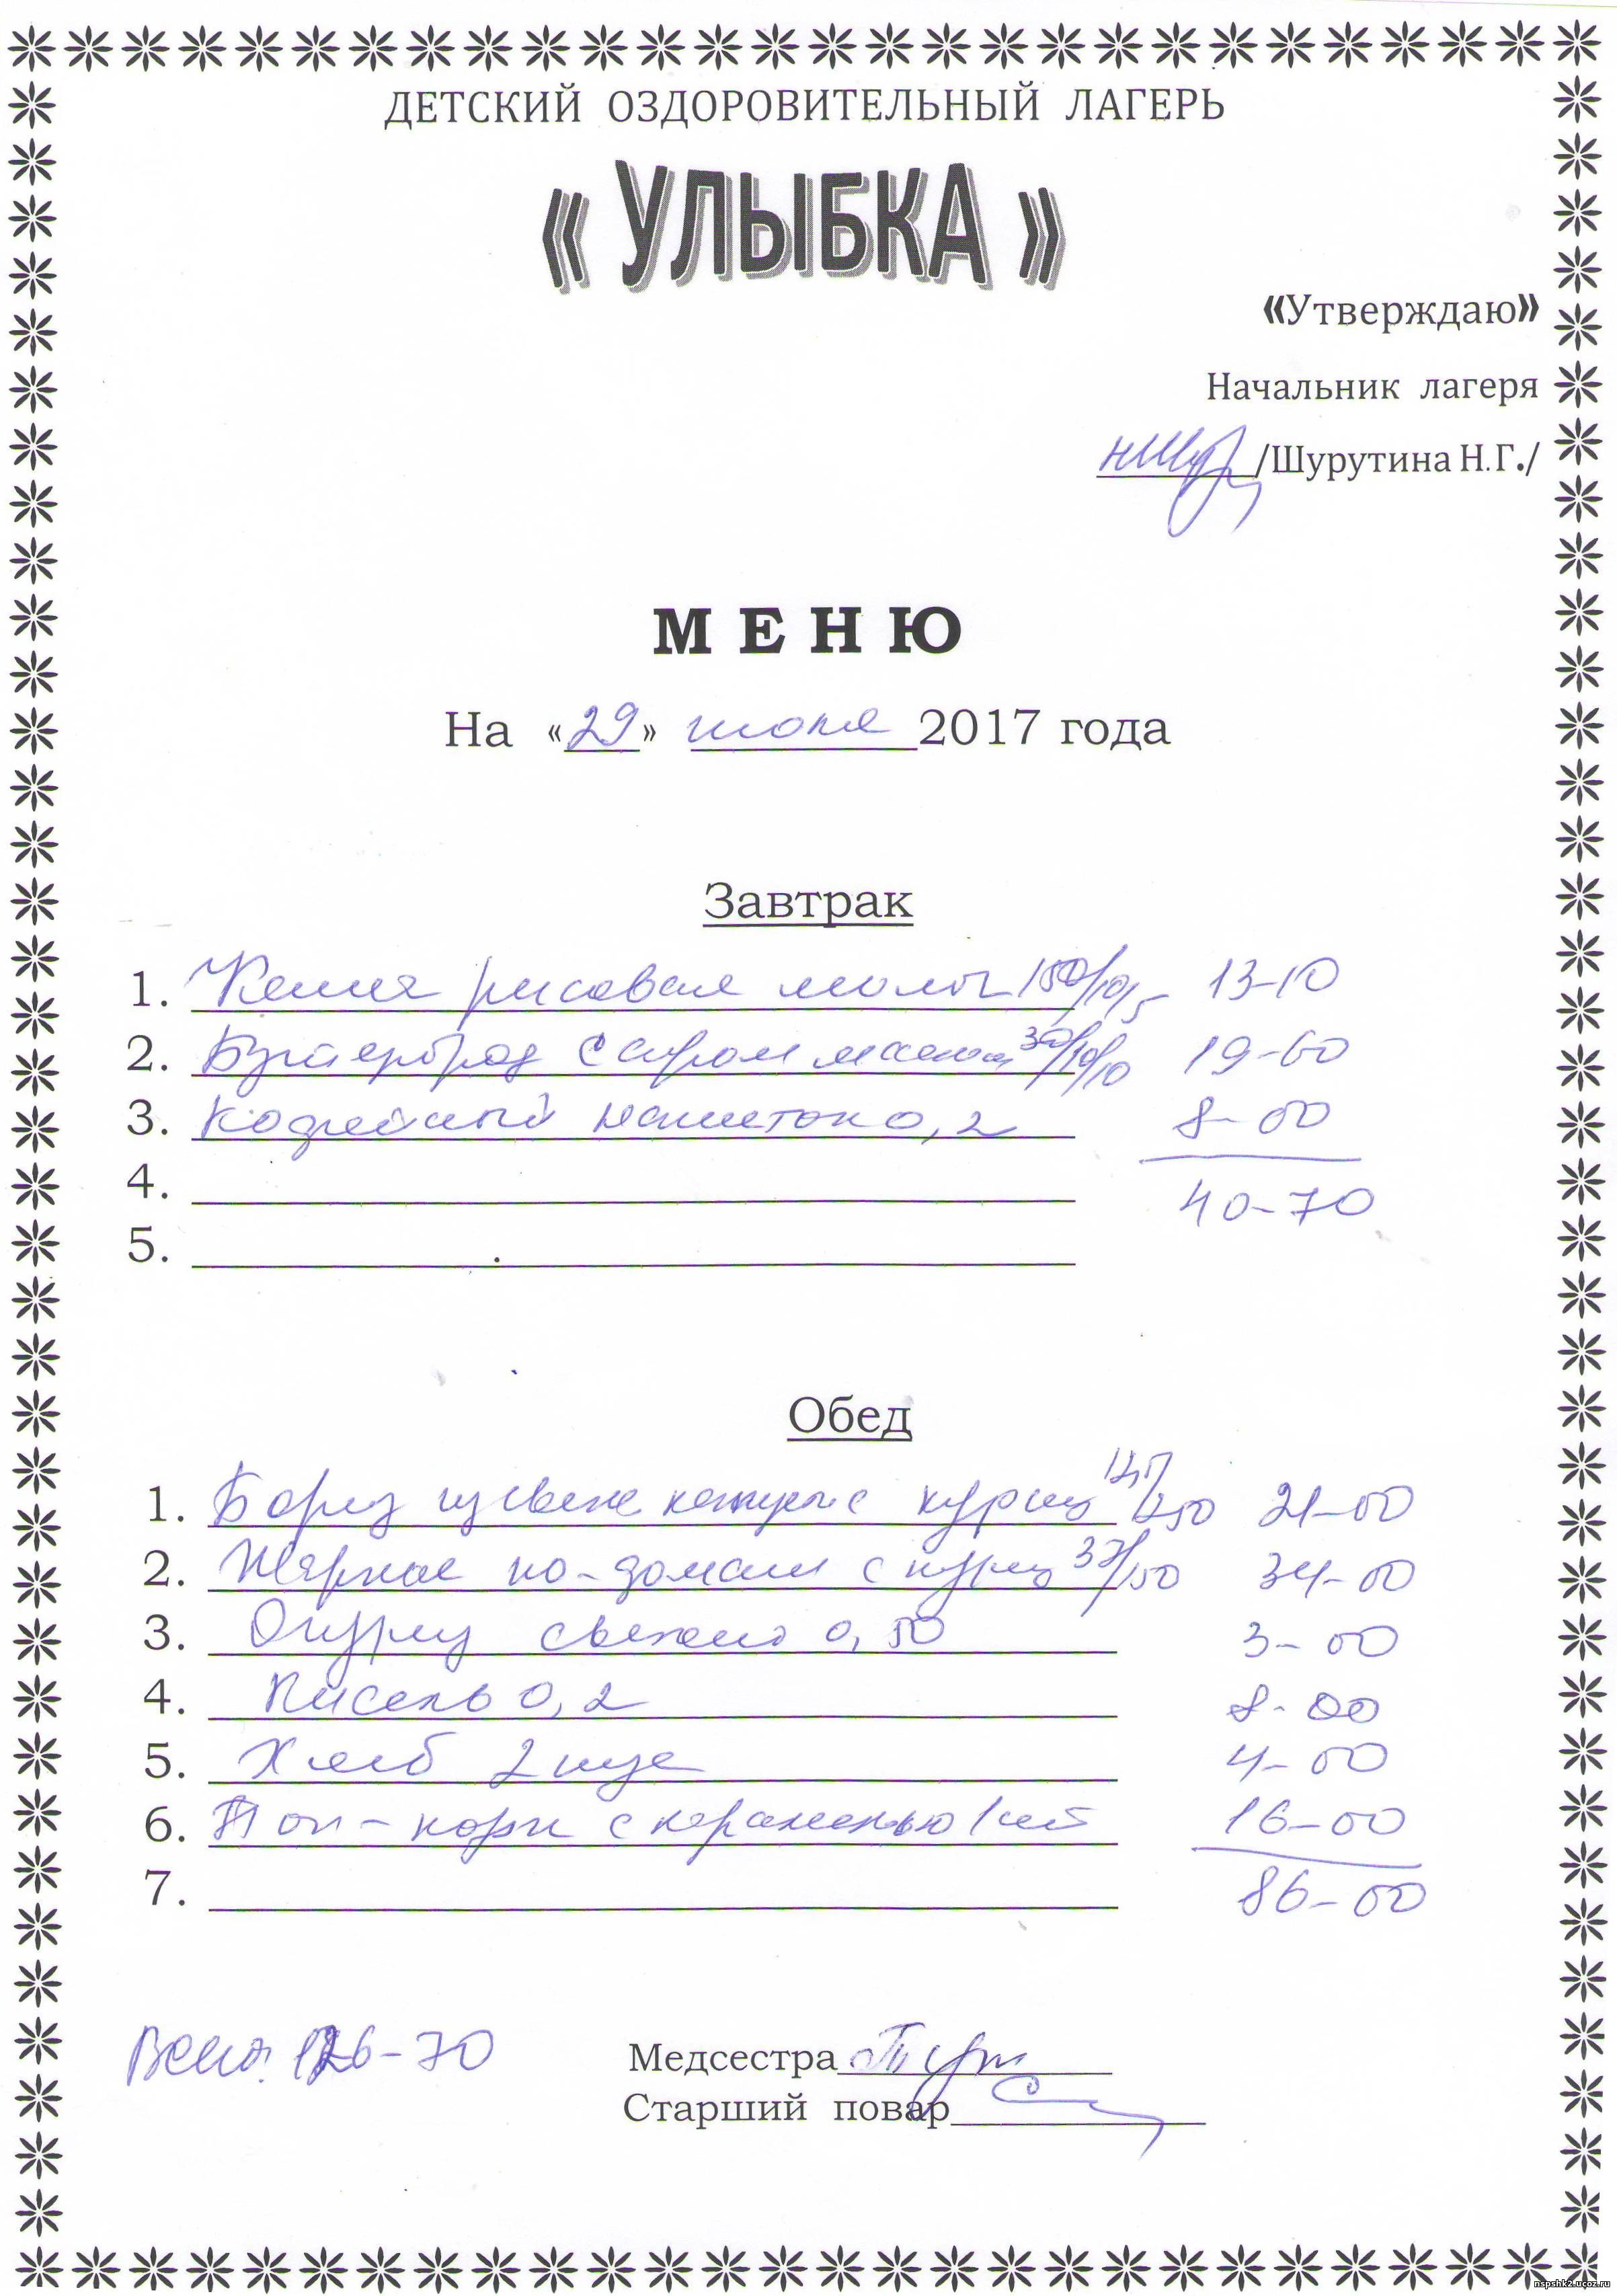 ДЕТСКИЙ ОЗДОРОВИТЕЛЬНЫЙ ЛАГЕРЬ
« УЛЫБКА »
«Утверждаю»
Начальник лагеря
/Шурутина Н.Г./
МЕНЮ
На «29» июня 2017 года
Завтрак
1. Каша рисовая молоч 150/10/5 13-10
2. Бутерброд с сыром маслом 30/10/10 19-60
3. Кофейный напиток 0,2 8-00
4. 40-70
5.
Обед
1. Борщ из свеж капусты с курицей /250 21-00
2. Жаркое по-домаш с куриц /150 34-00
3. Огурец свежий 0,50 3-00
4. Кисель 0,2 8-00
5. Хлеб 2 куска 4-00
6. Поп-корн с карамелью 1 шт 16-00
7. 86-00
Всего: 126-70 Медсестра
Старший повар
nspshk2.ucoz.ru